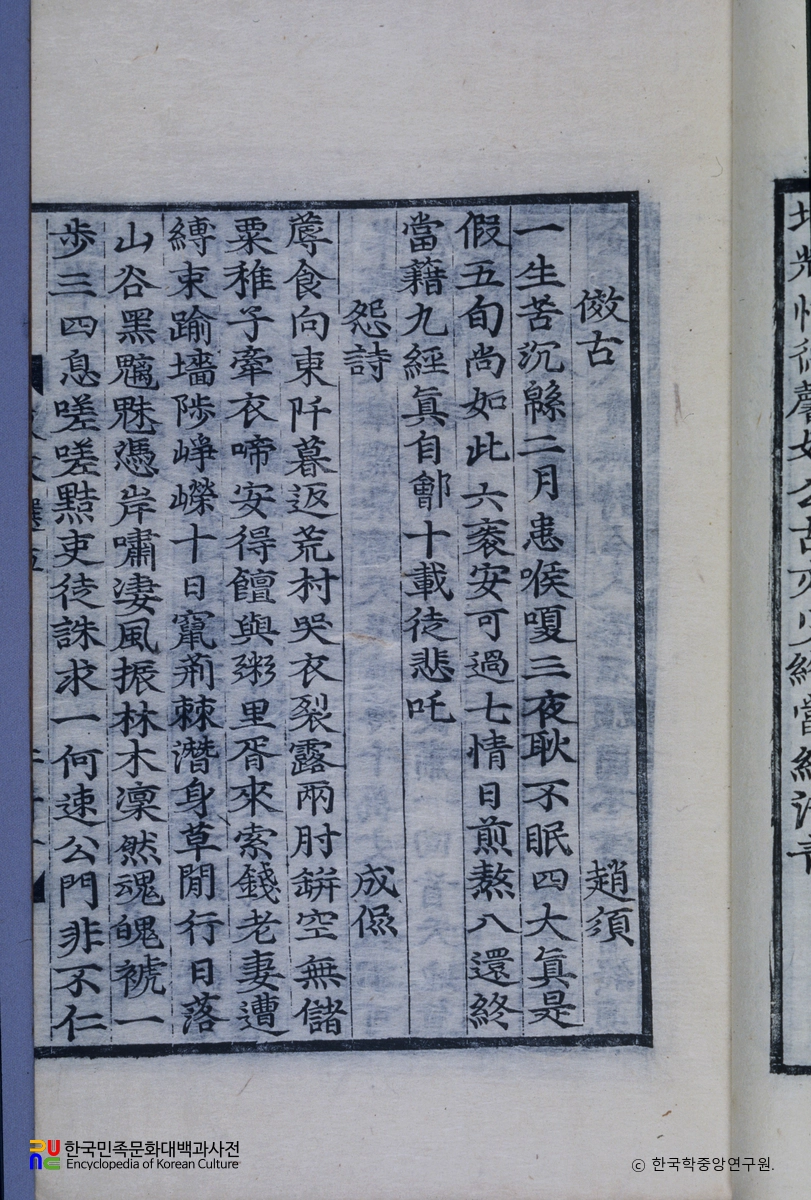 傚古 趙須
一生苦沉緜二月患喉嗄三夜耿不眠四大眞是
假五旬尚如此六袠安可過七情日煎熬八還終
當藉九經眞自鄶十載徒悲吒
怨詩 成侃
蓐食向東阡暮返荒村哭衣裂露兩肘缾空無儲
粟稚子牽衣啼安得饘與粥里胥來索錢老妻遭
縛束踰墻陟崢嶸十日竄荊棘潛身草閒行日落
山谷黑魑魅憑岸嘯凄風振林木凜然魂魄褫一
步三四息嗟嗟黠吏徒誅求一何速公門非不仁
한국민족문화대백과사전
Encyclopedia of Korean Culture
ⓒ 한국학중앙연구원.